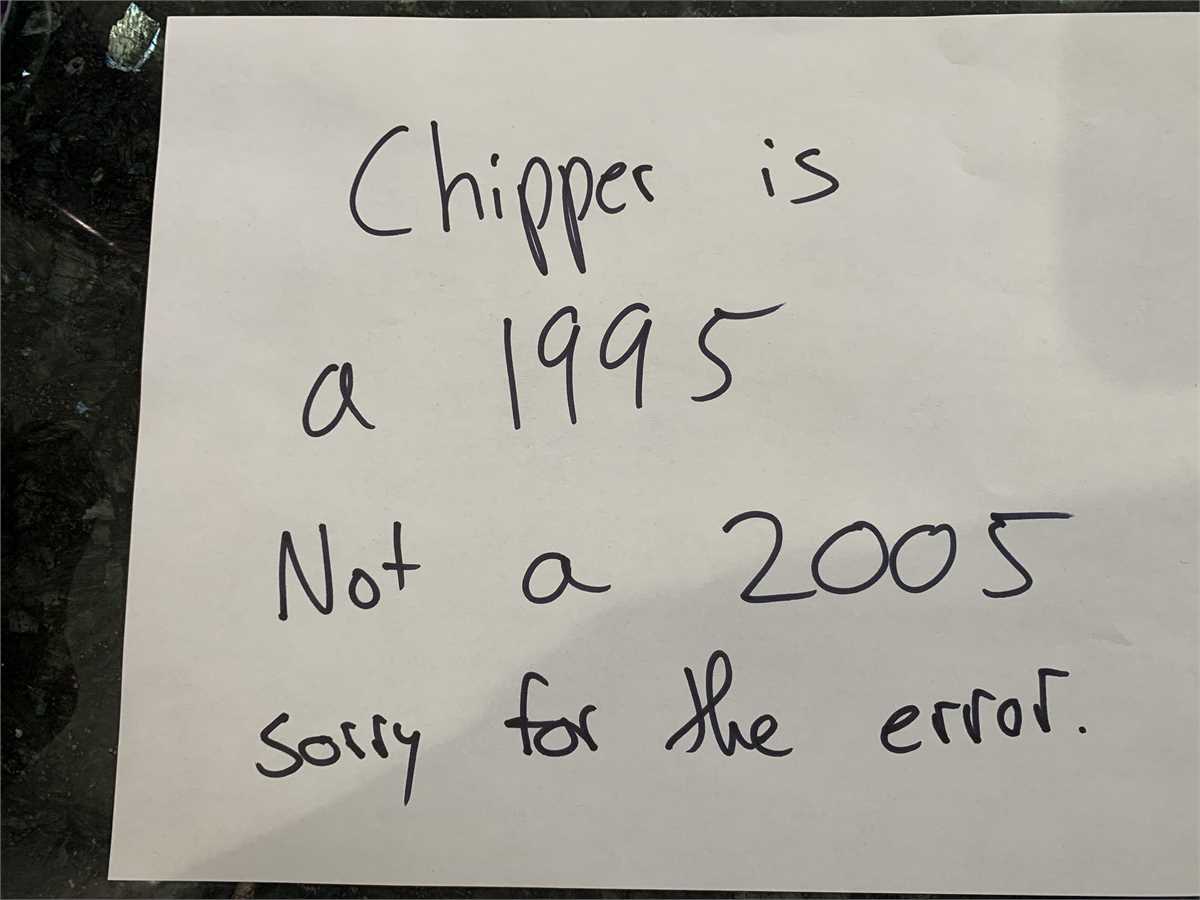 Chipper is
a 1995
Not a 2005
sorry for the error.